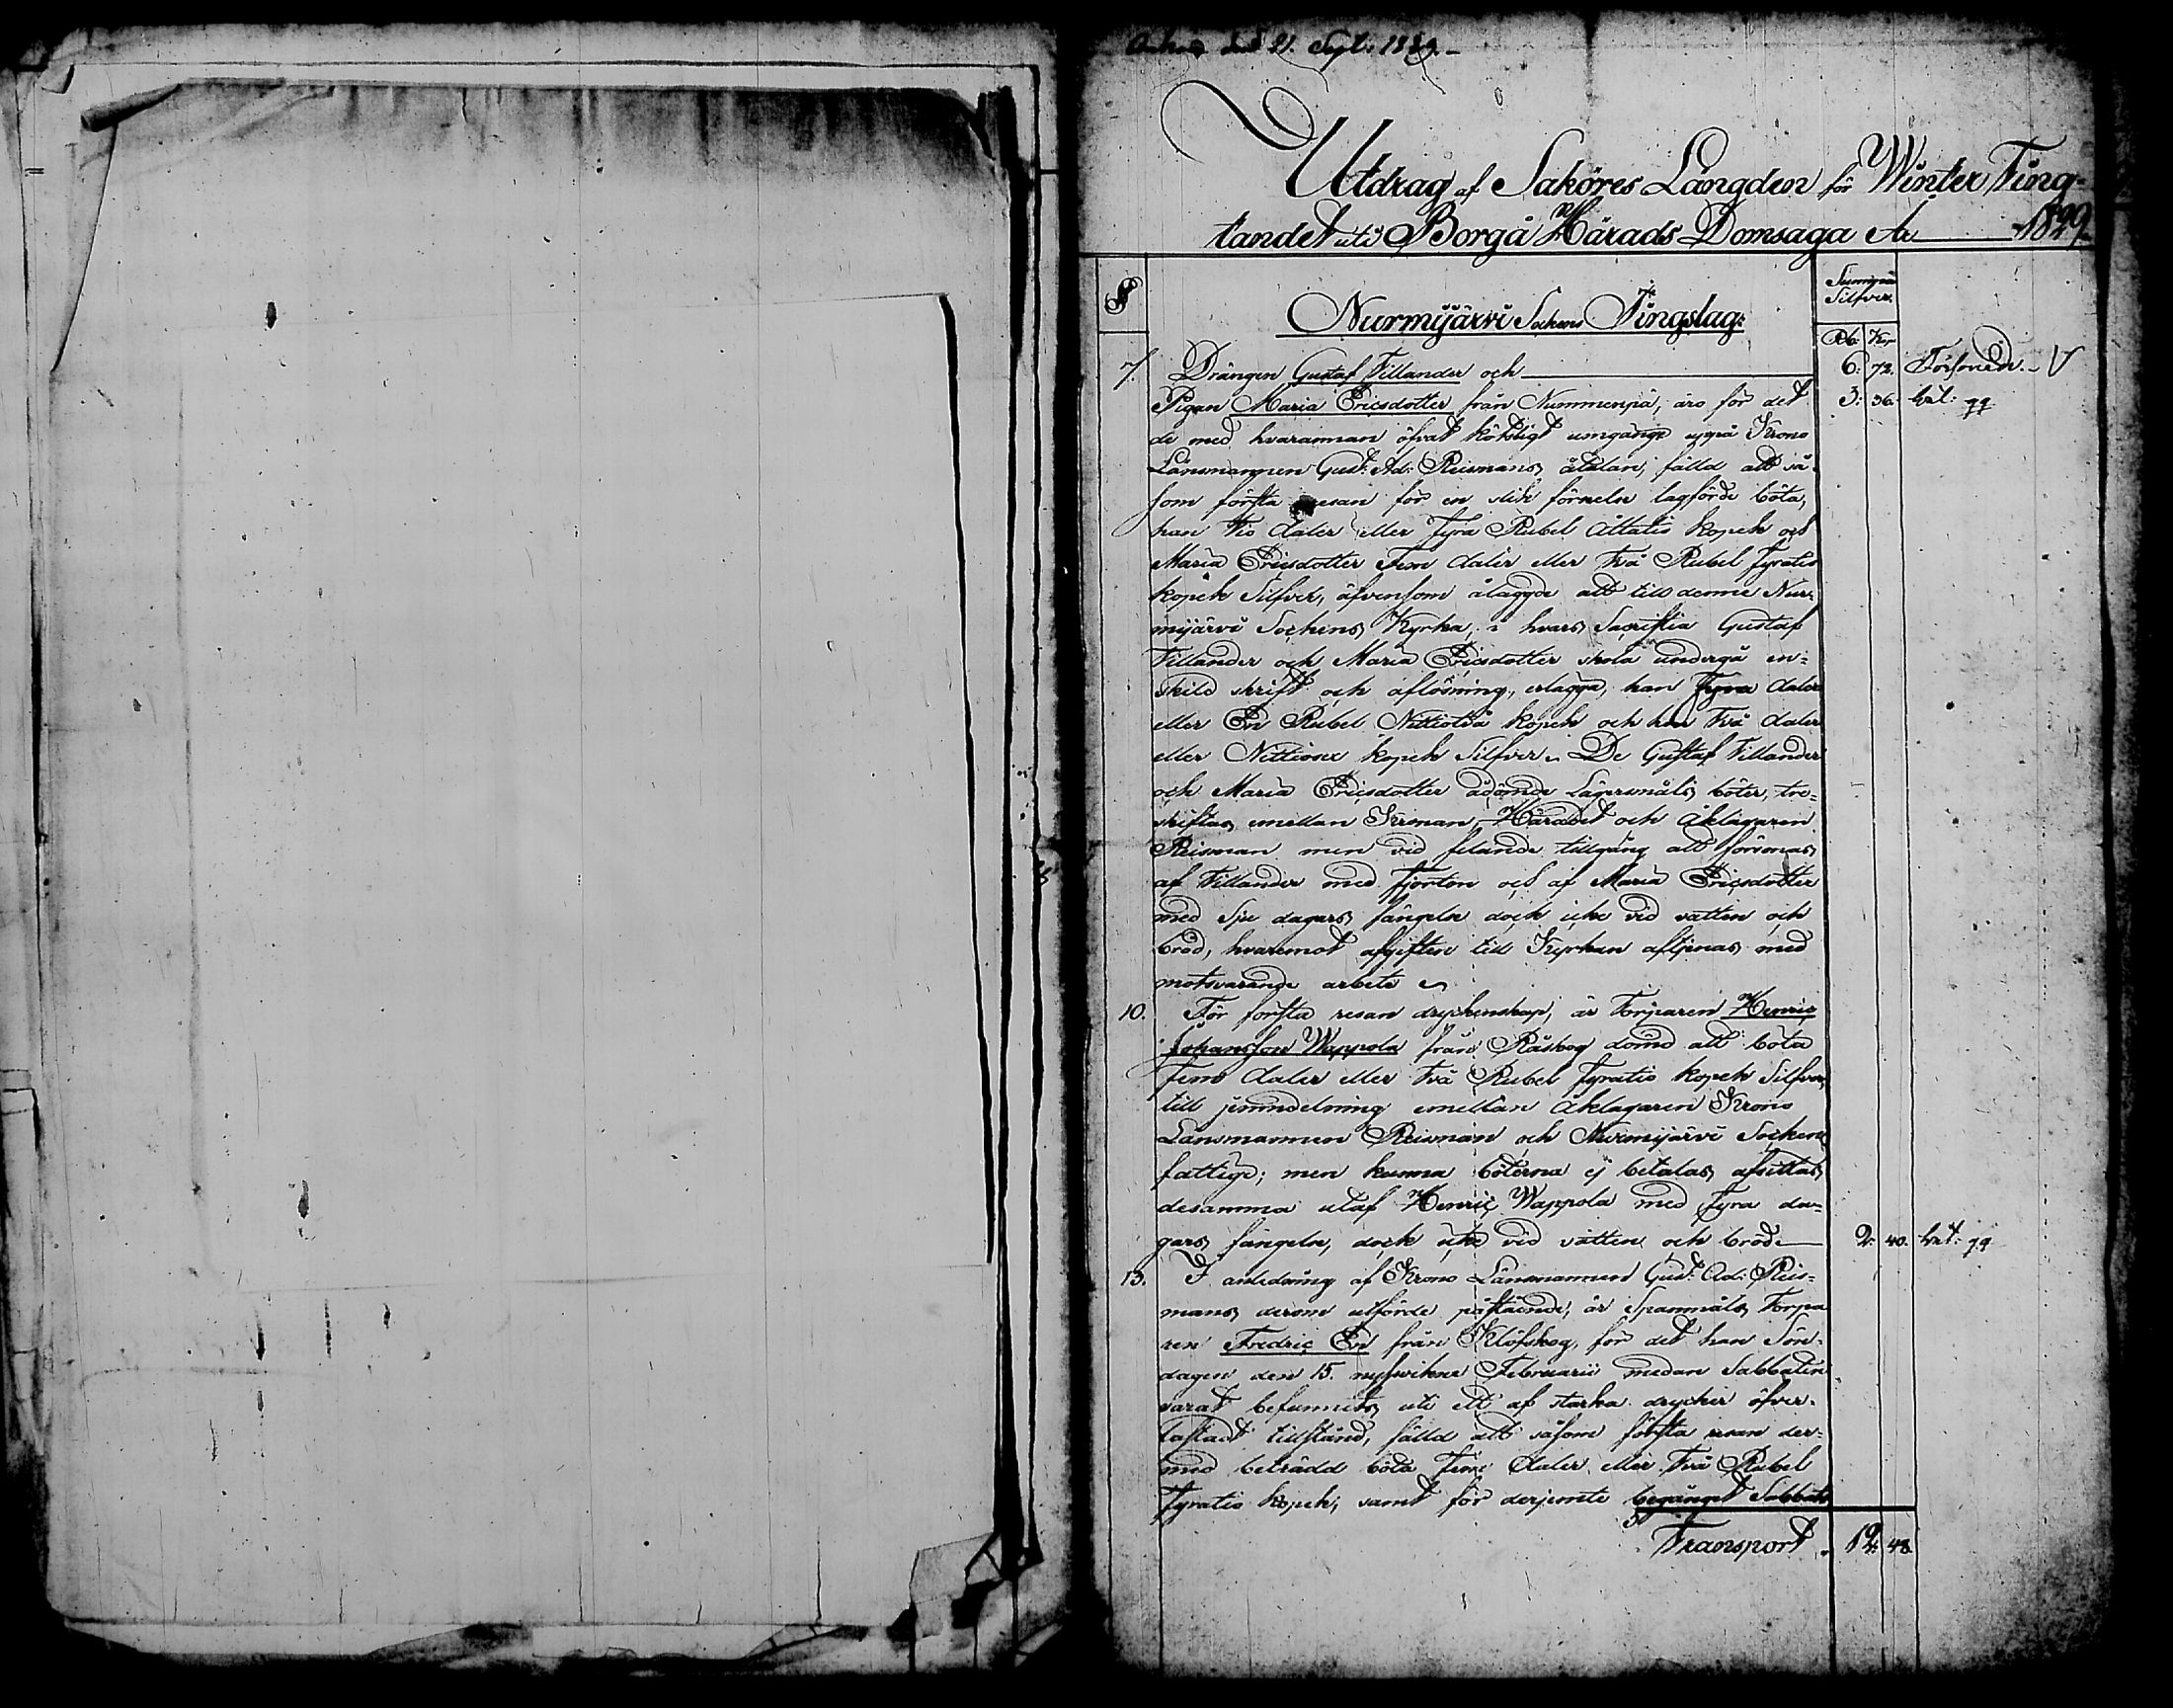 Ank: den 21. Sept: 1829.
Utdrag af Saköres Längden för Winter Ting-
tandet uti Borgå Härads Domsaga År 1829.
§
Summa Silfver.
Nurmijärvi Sockens Tingslag:
Rb: Kop
7. Drängen Gustaf Tillander och 6: 72. Försonade.
Pigan Maria Ericsdotter från Nummenpä, äro för det 3: 36. bet:
de med hvarannan öfvat köttsligt umgänge uppå Krono
Länsmannen Gust: Ad: Reismans åtalan, fälld att så-
som första resan för en slik förseelse lagförde böta,
han Tio daler eller Fyra Rubel Åttatio kopek och
Maria Ericsdotter Fem daler eller Två Rubel Fyratio
kopek Silfver, äfvensom ålagde att till denne Nur-
mijärvi Sockens Kyrka, i hvars Sacristia Gustaf
Tillander och Maria Ericsdotter skola undergå en-
skild skrift och aflösning, erlägga, han Fyra daler
eller En Rubel Nittiotvå kopek och hon Två daler
eller Nittiosex kopek Silfver. De Gustaf Tillander
och Maria Ericsdotter ådömde Lägersmåls böter, tre-
skiftas emellan Kronan, Häradet och Åklagaren
Reisman men vid felande tillgång att försonas
af Tillander med fjorton och af Maria Ericsdotter
med Sju dagars fängelse dock icke vid vatten och
bröd, hvaremot afgiften till Kyrkan aftjenas med
motsvarande arbete
10. För första resan dryckenskap, är Torparen Henric
Johansson Wappola från Råskog dömd att böta
Fem daler eller Två Rubel Fyratio kopek Silfver,
till jemndelning emellan Åklagaren Krono
Länsmannen Reisman och Nurmijärvi Sockens
fattige; men kunna böterna ej betalas, afsittas
desamma utaf Henric Wappola med Fyra da-
gars fängelse, dock icke vid vatten och bröd. 2: 40. bet:
13. I anledning af Krono Länsmannen Gust: Ad: Reis-
mans derom utförde påstående, är Spannmåls Torpa
ren Fredric En från Klöfskog, för det han Sön-
dagen den 15. nyssvikne Februarii medan Sabbaten
varat befunnits uti ett af starka drycker öfver-
lastadt tillstånd, fälld att såsom första resan der-
med beträdd böta Fem daler eller Två Rubel
Fyratio kopek, samt för derjemte begånget Sabbats
Transport 12: 48.